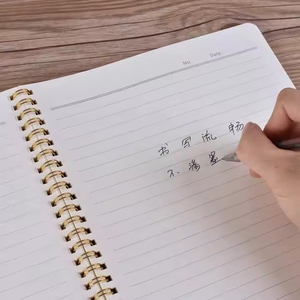 No. Date.
书写流畅
不渗墨